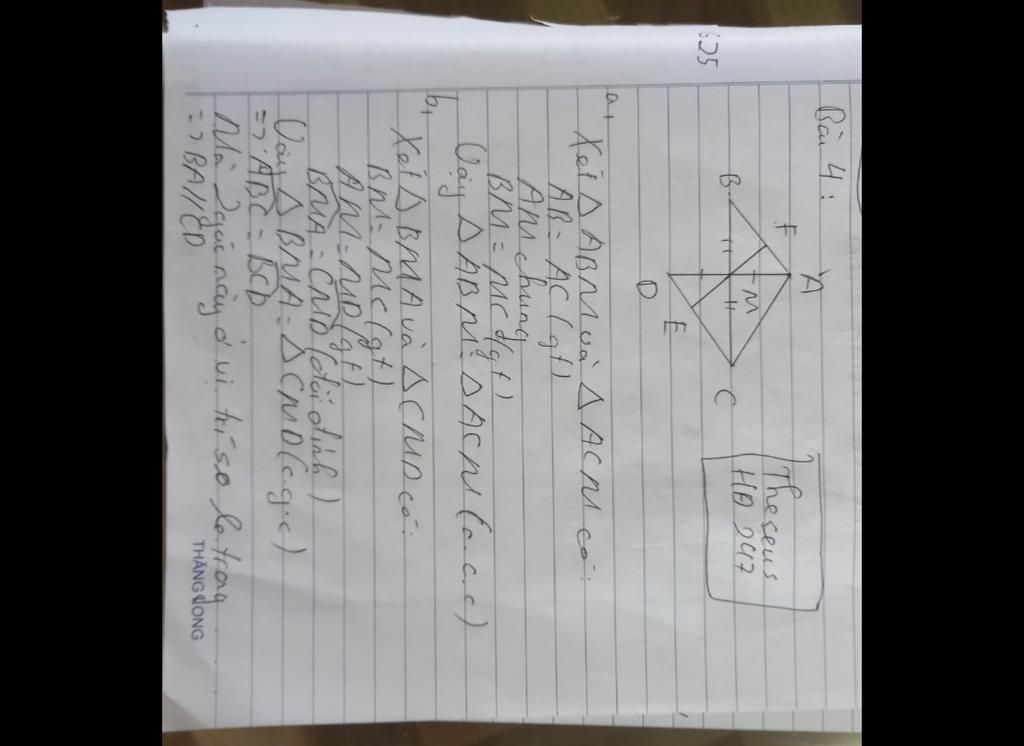 625
Bài 4:
A
F
B
M
C
E
D
Theseus
HĐ 247
a,
Xét △ ABM và △ ACM có:
AB = AC (gt)
AM chung
BM = MC (gt)
Vậy △ ABM = △ ACM (c.c.c)
b,
Xét △ BMA và △ CMD có:
BM = MC (gt)
AM = MD (gt)
BMA = CMD (đối đỉnh)
Vậy △ BMA = △ CMD (c.g.c)
=> ABC = BCD
Mà 2 góc này ở vị trí so le trong
=> BA // CD
THĂNG LONG